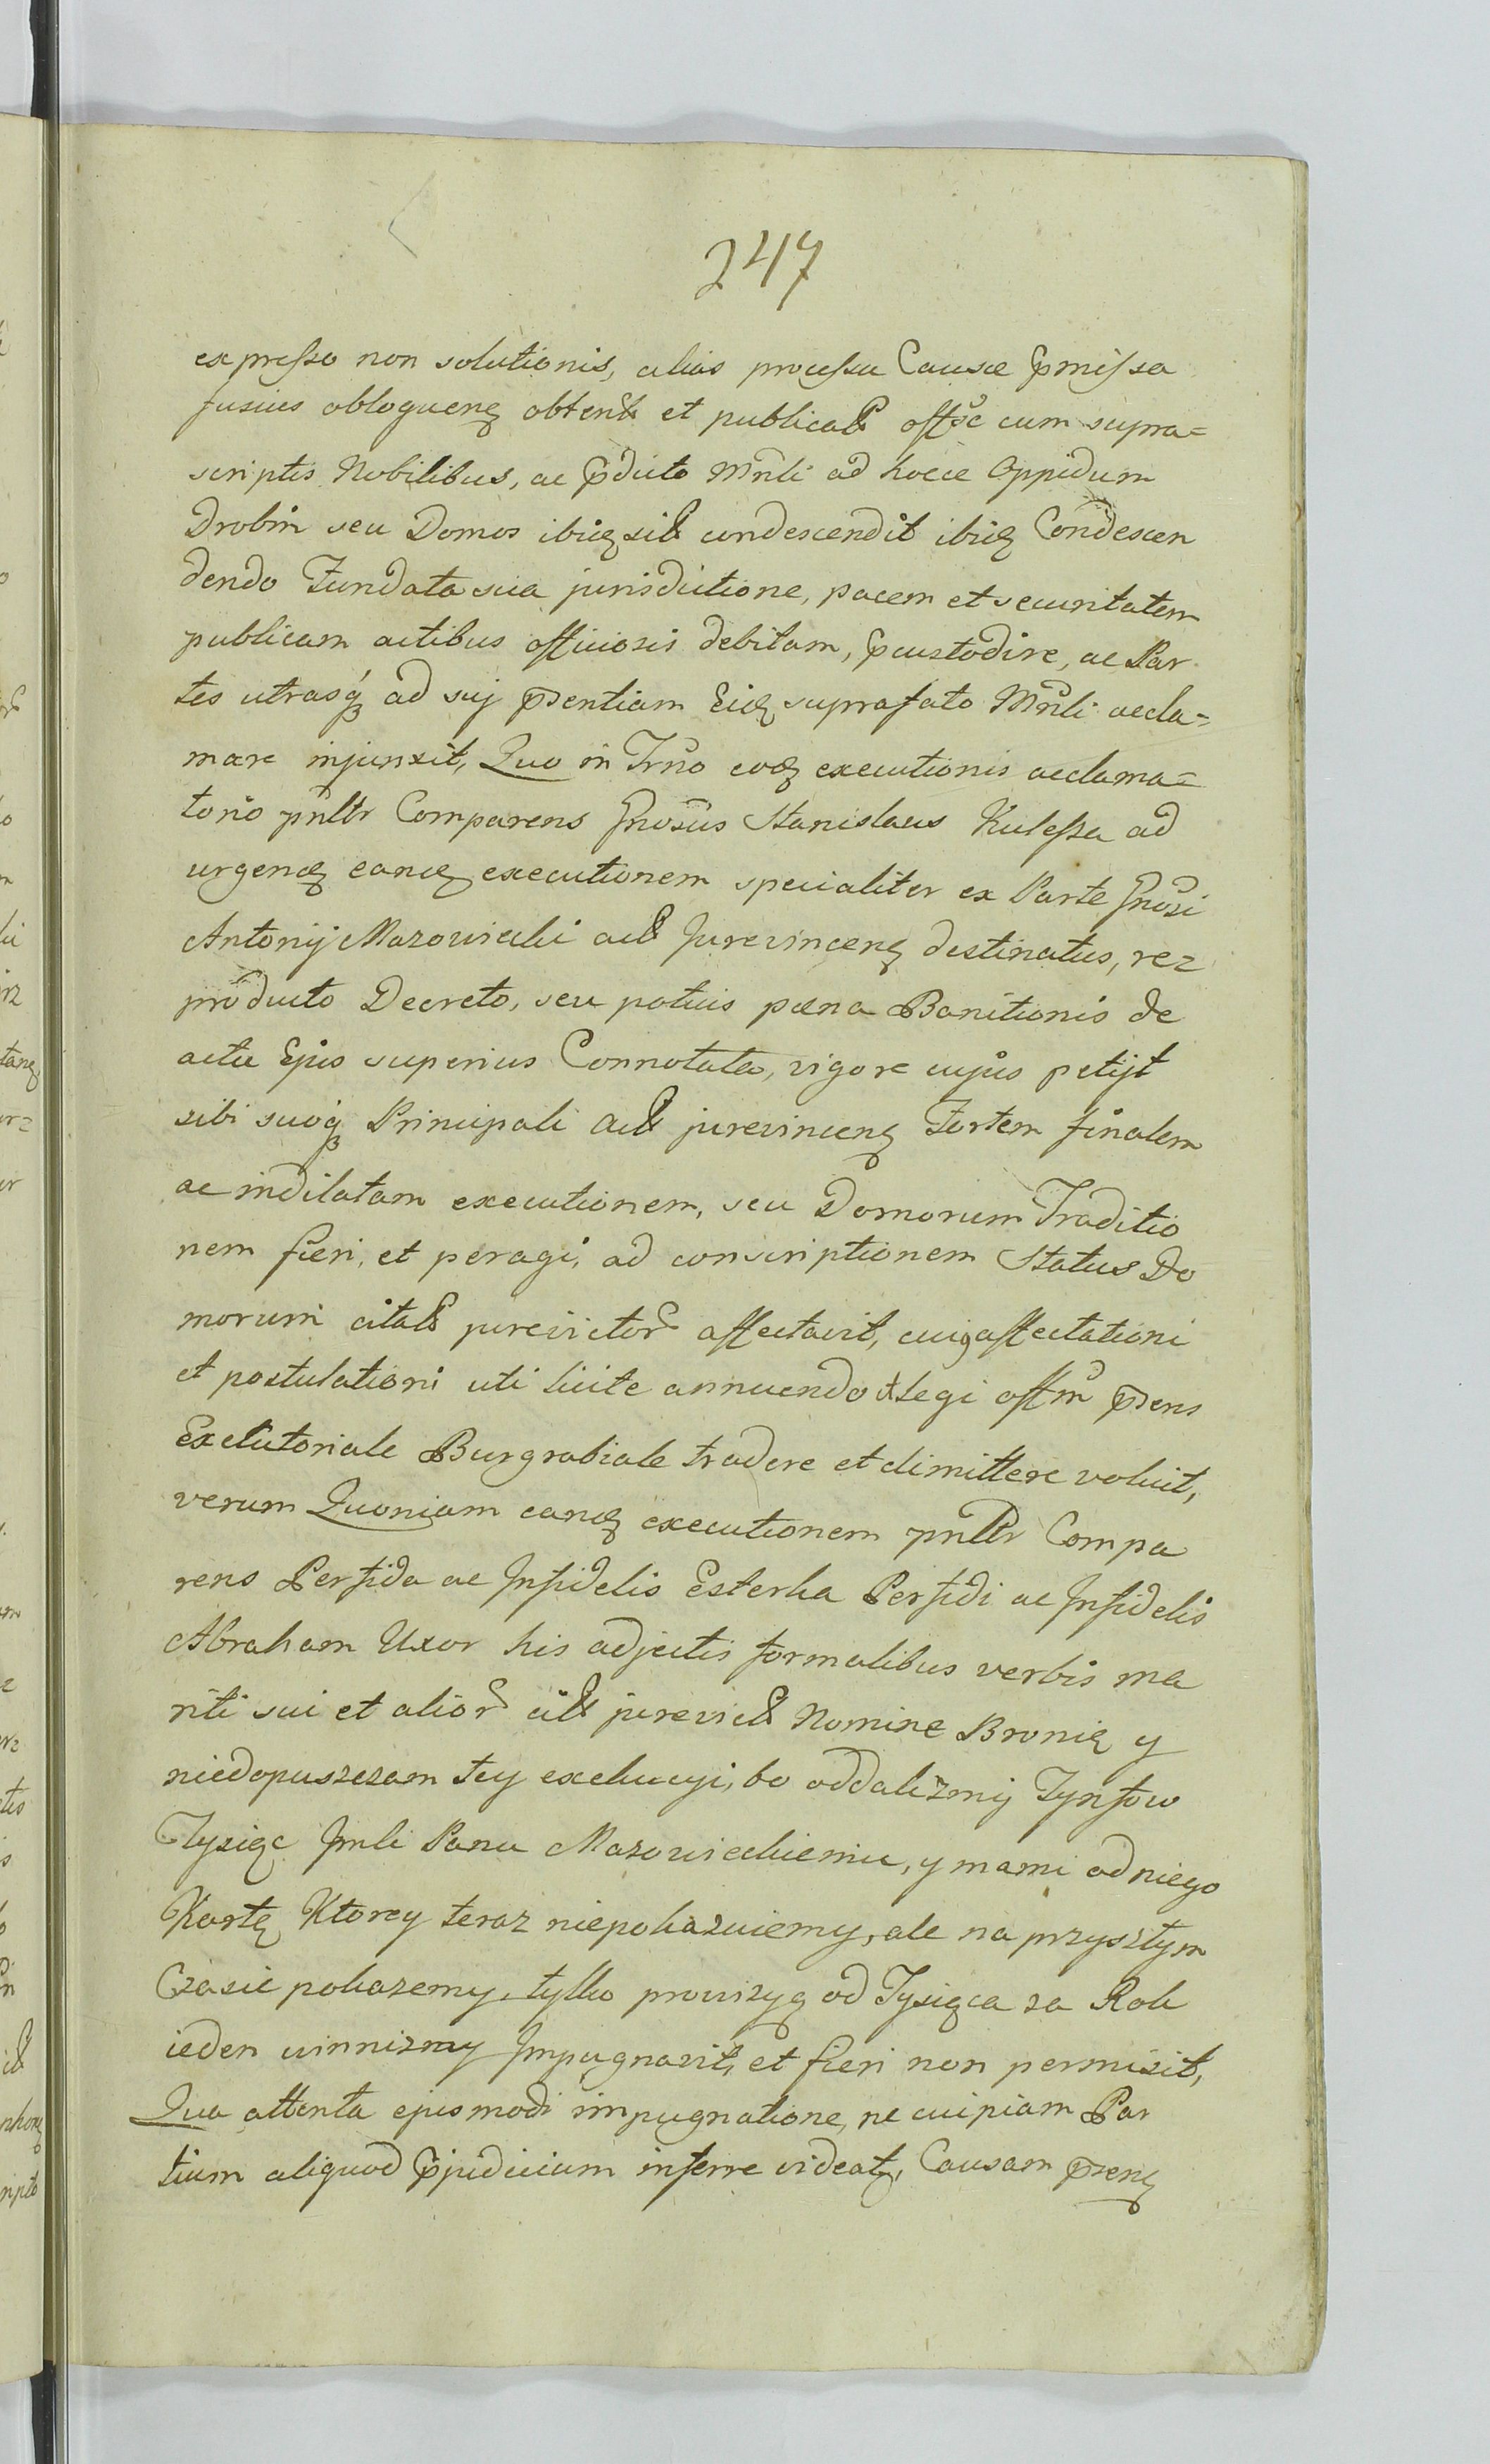 247
expresso non solutionis, alias processu Causæ p̃missa
fusius obloquenȩ obtent et publicat offo̅se cum supra=
scriptis Nobilibus, ac p̃dicto Mn̅li ad hocce Oppidum
Drobin seu Domos ibiȩ sit condescendit ibiȩ Condescen
dendo Fundata sua jurisdictione, pacem et securitatem
publicam actibus officiosis debitam, p̃custodire, ac Par
tes utrasq́ȝ ad suj p̃sentiam Eidȩ suprafato Mn̅li accla=
mare injunxit, Quo in Trn̅o eodȩ executionis acclama=
torio pn̅ltr Comparens Gn̅osus Stanislaus Kulesza ad
urgendȩ eandȩ executionem specialiter ex Parte Gn̅osi
Antonij Mazowiecki act Jurevincenȩ destinatus, re=
producto Decreto, seu potius pæna Banitionis de
actu Ejus superius Connotato, vigore cujus petijt
sibi suoq́ȝ Principali Act jurevincenȩ Fortem finalem
ac indilatam executionem, seu Domorum Traditio
nem fieri, et peragi, ad conscriptionem Status Do
morum citat jurevictor affectavit, cuiȩ affectationi
et postulationi uti licite annuendo Legi offm̅ p̃sens
Executoriale Burgrabiale tradere et dimittere voluit,
verum Quoniam eandȩ executionem pn̅ltr Compa
rens Perfida ac Infidelis Esterka Perfidi ac Infidelis
Abraham Uxor his adjectis formalibus verbis ma
riti sui et alior cit jurevict Nomine Bronię y
niedopuszczam tey exekucyi, bo oddalizmy Tynfow
Tysięc Jmci Panu Mazowieckiemu, y mami od niego
Kartę Ktorey teraz niepokazuiemy, ale na przyszłym
Czasie pokazemy, tylko prowizyą od Tysięca za Rok
ieden winnizmy Impugnavit, et fieri non permisit,
Qua attenta ejusmodi impugnatione, ne cuipiam Par
tium aliquod p̃judicium inferre videatȩ, Causam p̃senȩ